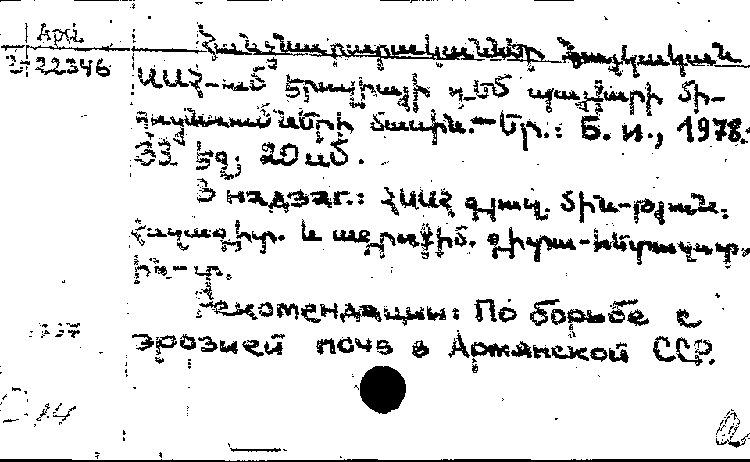 Арм.
22346
Հանձնարարականներ Հայկական
ՍՍՀ-ում էրոզիայի դեմ պայքարի մի-
ջոցառումների մասին.—Եր.: Б. и., 1978.
33 էջ, 20 սմ.
В надзаг.: ՀՍՍՀ գյուղ. մին-թյուն.
Հողագիտ. և ագրոքիմ. գիտա-հետազոտ.
ին-տ.
Рекомендации: По борьбе с
эрозией почв в Армянской ССР.
337
14